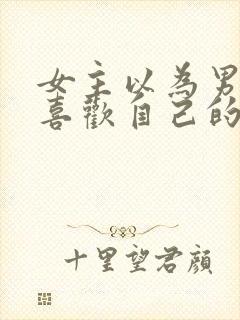 女主以為男
喜歡自己的
十里望君顏